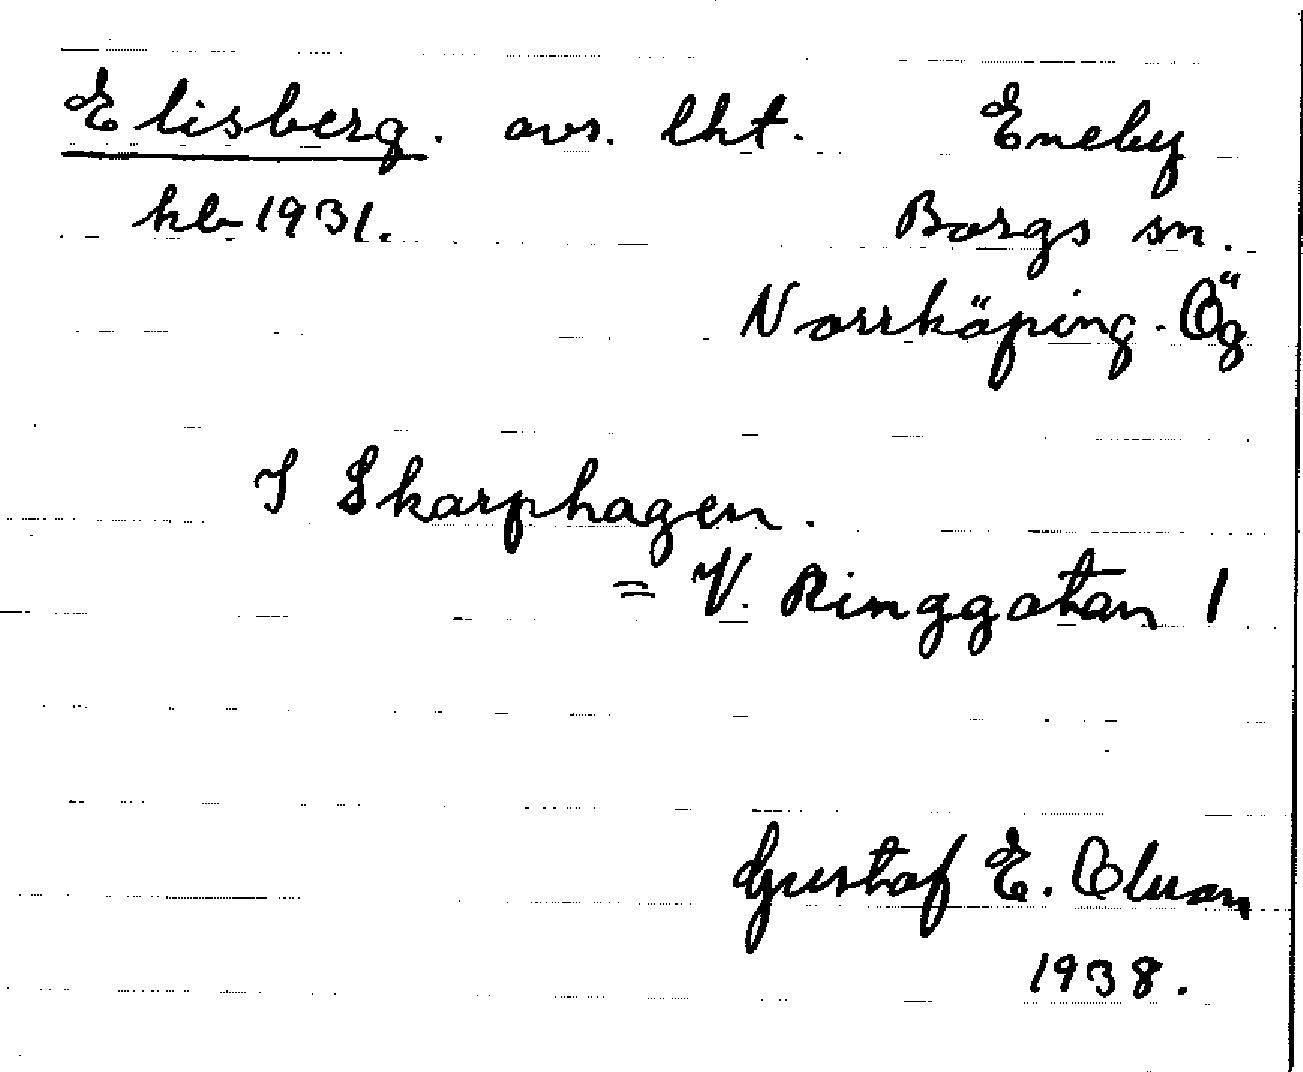 Elisberg. avs. lht. Eneby
kb 1931. Borgs sn.
Norrköping. Ög
I Skarphagen.
= V. Ringgatan 1
Gustaf E. Olsson
1938.